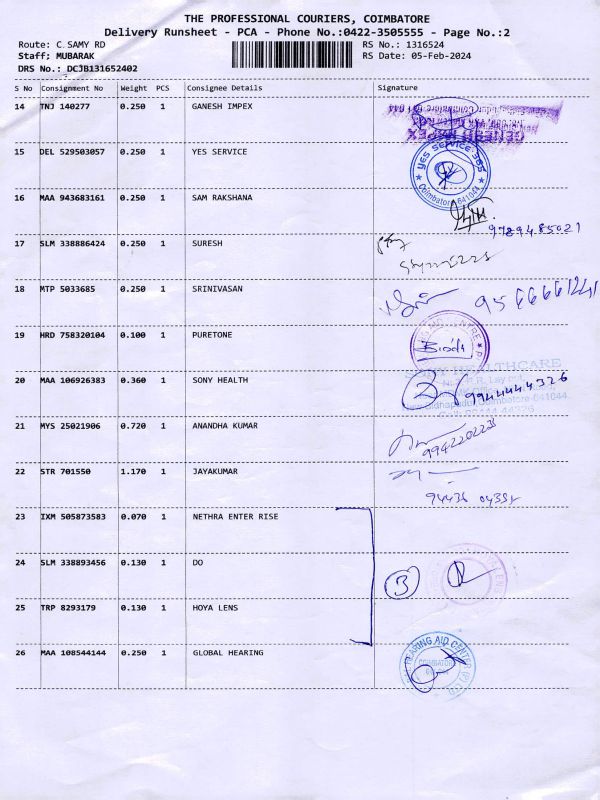 THE PROFESSIONAL COURIERS, COIMBATORE
Delivery Runsheet - PCA - Phone No.:0422-3505555 - Page No.:2
Route: C SAMY RD RS No.: 1316524
Staff; MUBARAK RS Date: 05-Feb-2024
DRS No.: DCJB131652402
S No Consignment No Weight PCS Consignee Details Signature
14 TNJ 140277 0.250 1 GANESH IMPEX
15 DEL 529503057 0.250 1 YES SERVICE
YES SERVICE
Coimbatore-641044
16 MAA 943683161 0.250 1 SAM RAKSHANA
9789485021
17 SLM 338886424 0.250 1 SURESH
18 MTP 5033685 0.250 1 SRINIVASAN
19 HRD 758320104 0.100 1 PURETONE
20 MAA 106926383 0.360 1 SONY HEALTH
SONY HEALTHCARE
9944444326
21 MYS 25021906 0.720 1 ANANDHA KUMAR
22 STR 701550 1.170 1 JAYAKUMAR
23 IXM 505873583 0.070 1 NETHRA ENTER RISE
24 SLM 338893456 0.130 1 DO
3
25 TRP 8293179 0.130 1 HOYA LENS
26 MAA 108544144 0.250 1 GLOBAL HEARING
HEARING AID CENTER (P) LTD
COIMBATORE